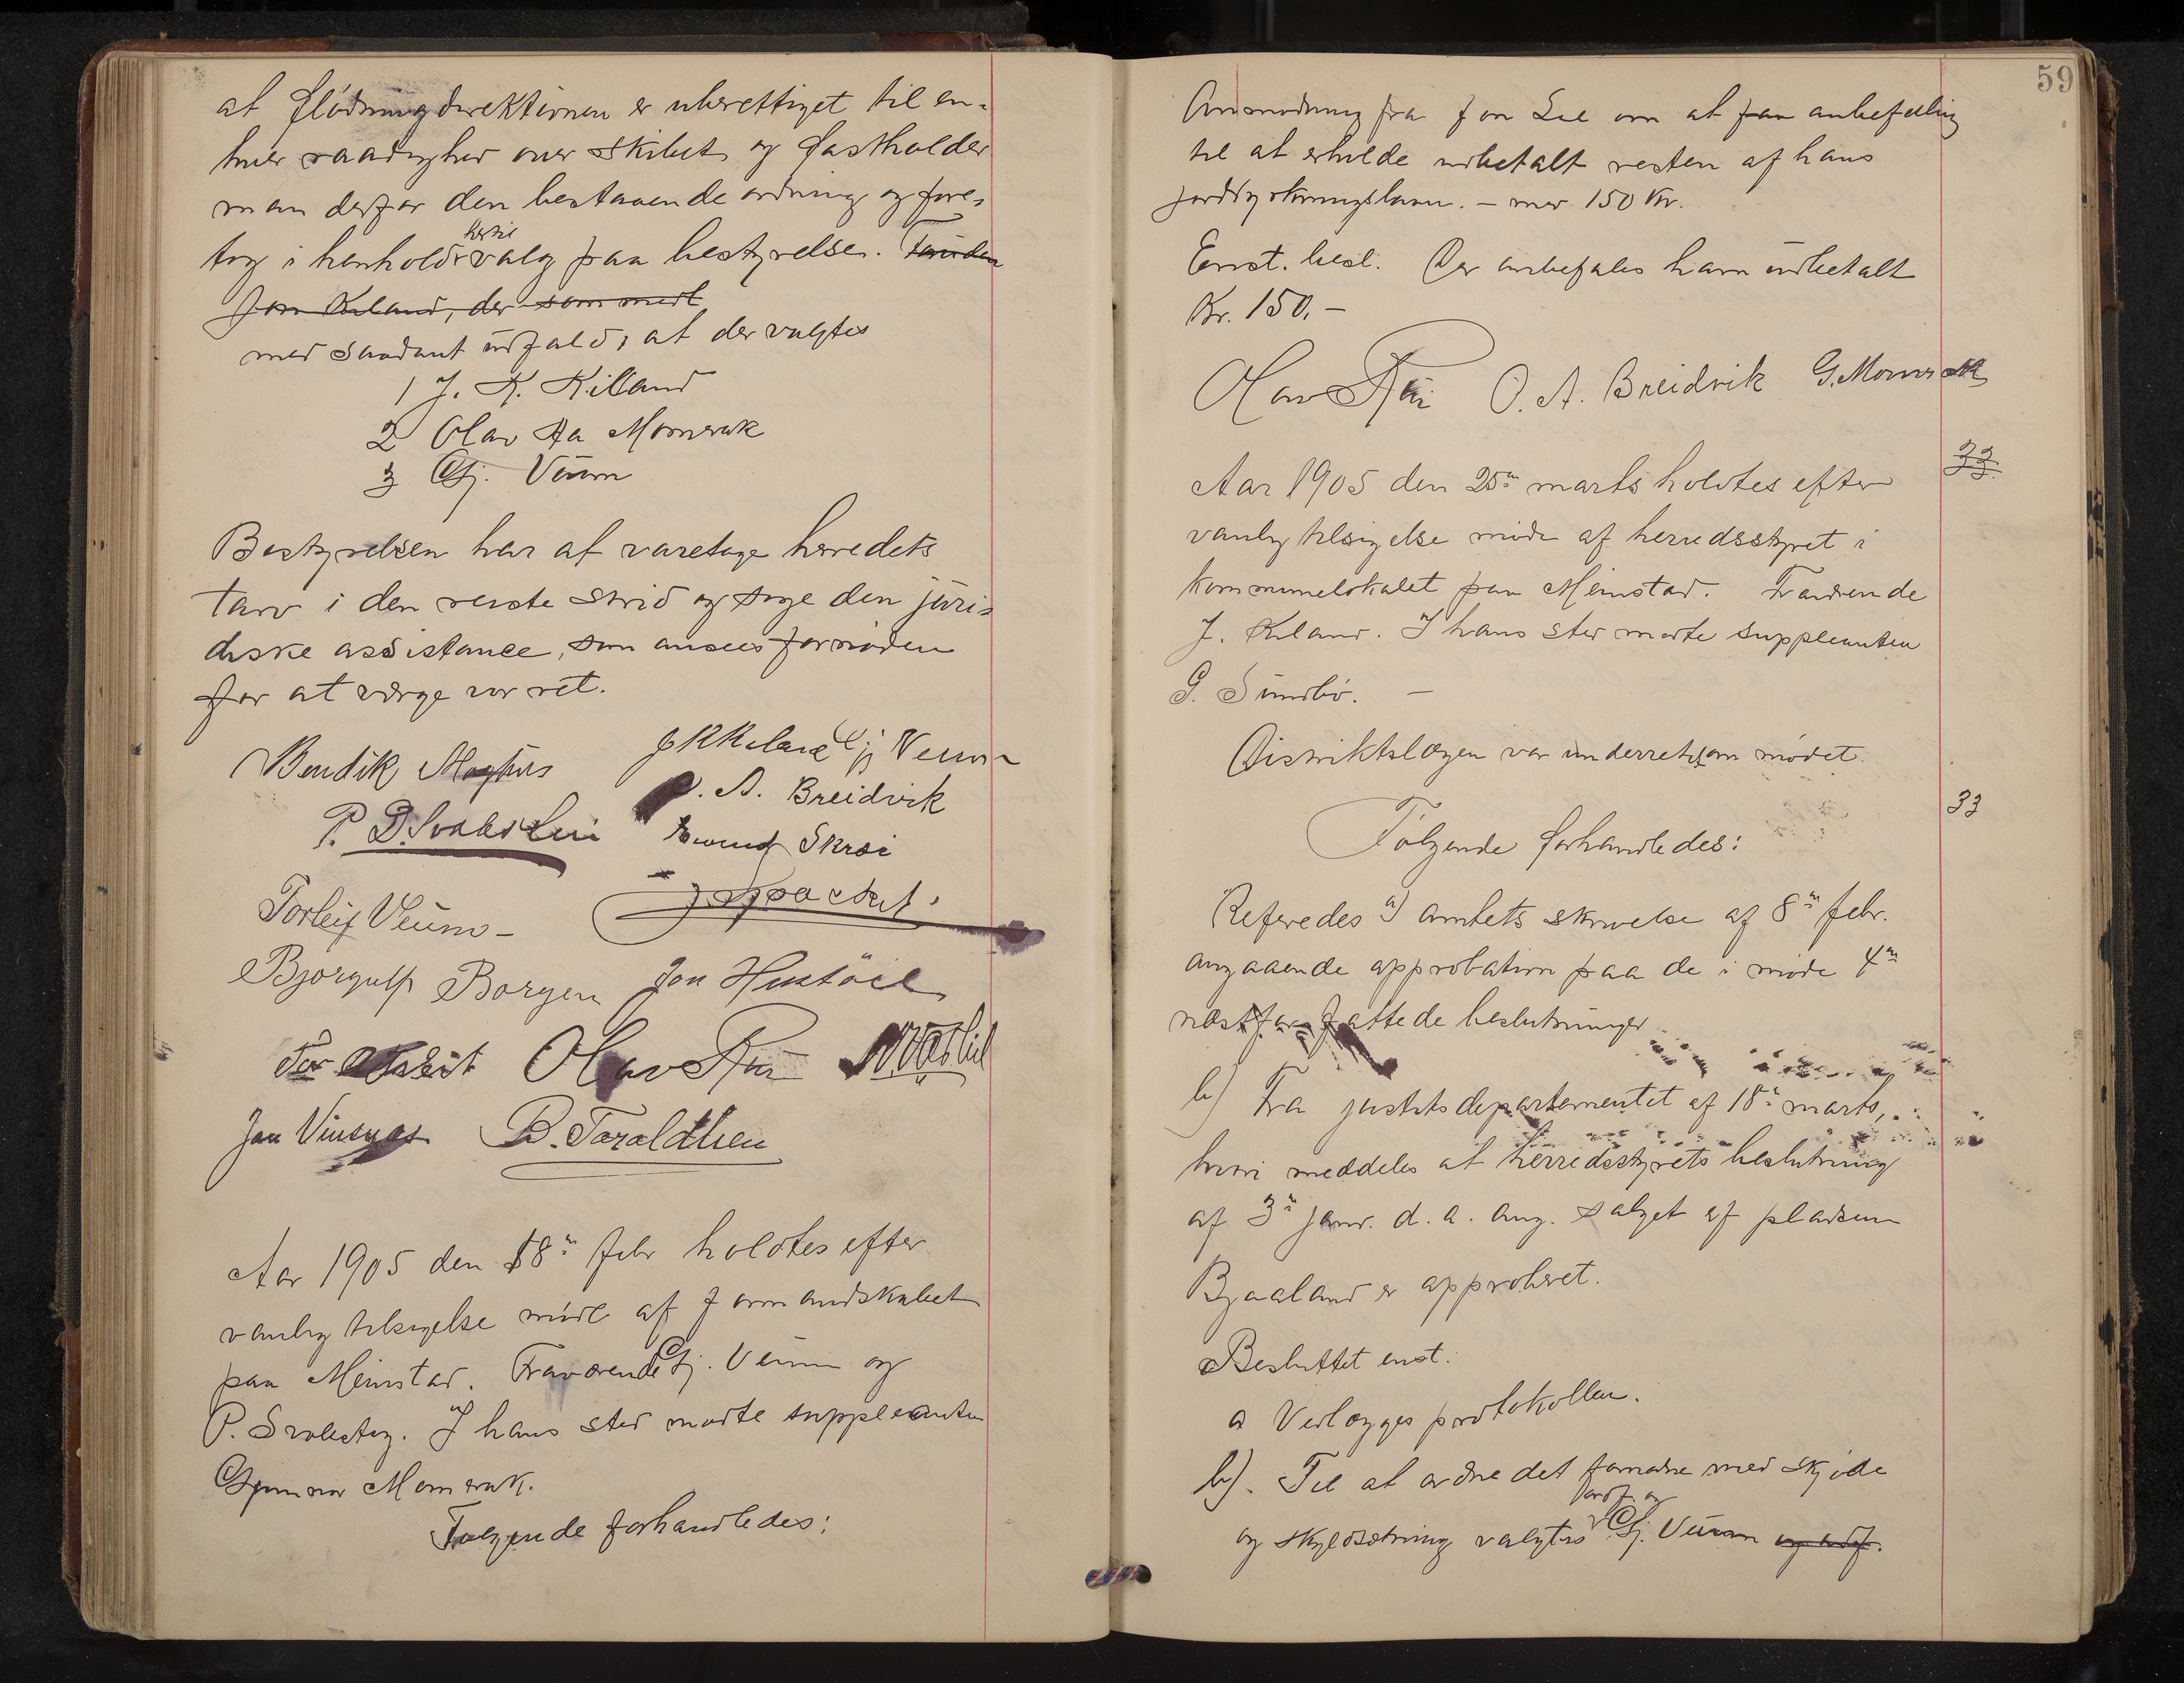 at flødningsdirektionen er uberettiget til en-
hver raadighed over skibet og fastholder
man derfor den bestaaende ordning og fore-
tog i henhold hertil valg paa bestyrelse.
Jon Kiland, der som medl
med saadant udfald, at der valgtes
1 J. K. Killand
2 Olav Aa Momrak
3 Gj. Veum
Bestyrelsen har at varetage herredets
tarv i den reiste strid og søge den juri-
diske assistance, som ansees fornøden
for at værge vor ret.
Bendik Moghus JKKiland Gj Veum
O. A. Breidvik
P. D. Svalestui Eivind Skrei
Torleif Veum
Bjorgulf Borgen Jon Hustöil
Tor Olav Rui
Jon Vinsnes B. Taraldlien
Aar 1905 den 18n febr holdtes efter
vanlig tilsigelse møde af formandskabet
paa Meinstad. Fraværende Gj. Veum og
P. Svalestog. I hans sted mødte suppleanten
Gunnar Momrak.
Følgende forhandledes:
59
Anmodning fra Jon Lie om at faa anbefaling
til at erholde udbetalt resten af hans
jorddyrkningslaan. – mer 150 Kr.
Enst. besl. Der anbefales ham udbetalt
Kr. 150.–
Olav Rui O. A. Breidvik G. Momrak
33.
Aar 1905 den 25n marts holdtes efter
vanlig tilsigelse møde af herredsstyret i
kommunelokalet paa Meinstad. Fraværende
J. Kiland. I hans sted mødte suppleanten
G. Sundbø. –
Distriktslægen var underrettet om mødet.
33
Følgende forhandledes:
Referedes a) amtets skrivelse af 8n febr.
angaaende approbation paa de i møde 4n
næstfør fattede beslutninger
b) Fra justitsdepartementet af 18n marts,
hvori meddeles at herredsstyrets beslutning
af 3n janr. d. a. ang. salget af pladsen
Bjaaland er approberet.
Besluttet enst:
a Vedlægges protokollen.
b). Til at ordne det fornødne med skjøde
ordf. og
og skyldsætning valgtes Gj. Veum og ordf.